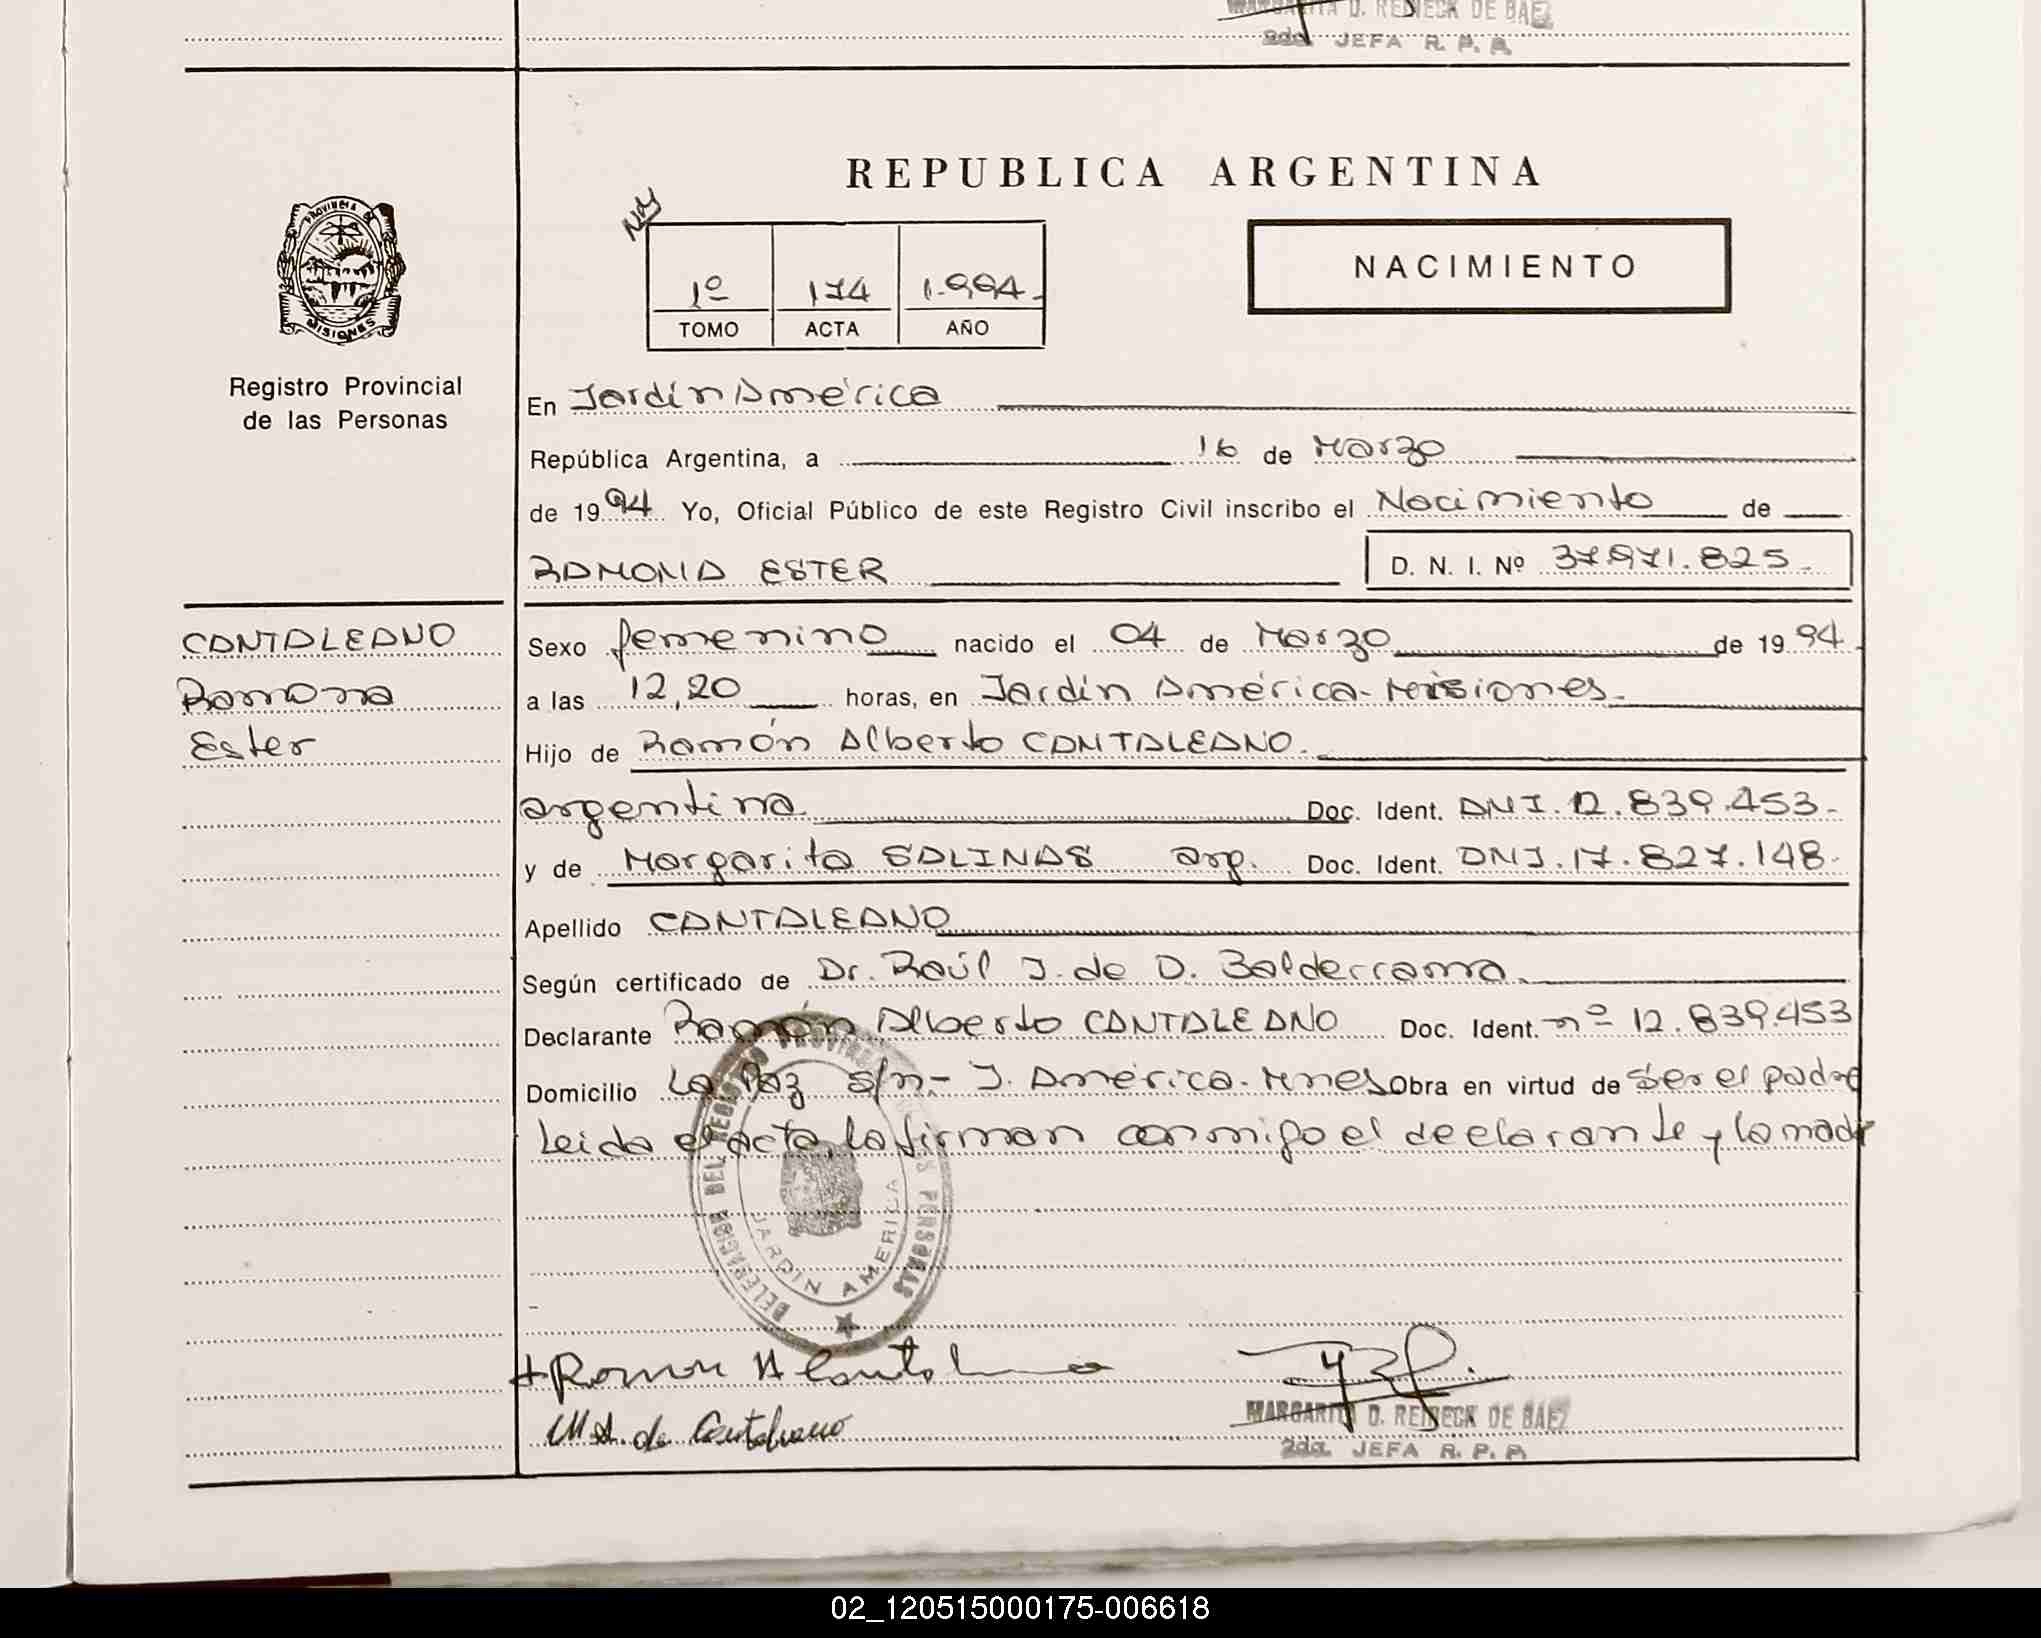 MARGARITA D. REINECK DE BAEZ
2da. JEFA R. P. P.
REPUBLICA ARGENTINA
NACIMIENTO
1º 174 1.994.
TOMO ACTA AÑO
PROVINCIA DE
MISIONES
Registro Provincial
de las Personas
En Jardín América
República Argentina, a 16 de Marzo
de 1994 Yo, Oficial Público de este Registro Civil inscribo el Nacimiento de
RAMONA ESTER D. N. I. Nº 37.971.825.
CANTALEANO
Ramona
Ester
Sexo femenino nacido el 04 de Marzo de 1994.
a las 12,20 horas, en Jardín América-Misiones.
Hijo de Ramón Alberto CANTALEANO.
argentina Doc. Ident. DNI.12.839.453.-
y de Margarita SALINAS arg. Doc. Ident. DNI.17.827.148.
Apellido CANTALEANO
Según certificado de Dr. Raúl J. de D. Balderrama.
Declarante Ramón Alberto CANTALEANO Doc. Ident. nº 12.839.453
Domicilio La Paz s/n- J. América-Mnes Obra en virtud de ser el padre
Leida el acta, la firman conmigo el declarante y la madr
DELEGACION DEL REGISTRO PROVINCIAL DE LAS PERSONAS
JARDIN AMERICA
Ramon A Cantaleano
M.S. de Cantaleano
MARGARITA D. REINECK DE BAEZ
2da. JEFA R. P. P.
02_120515000175-006618